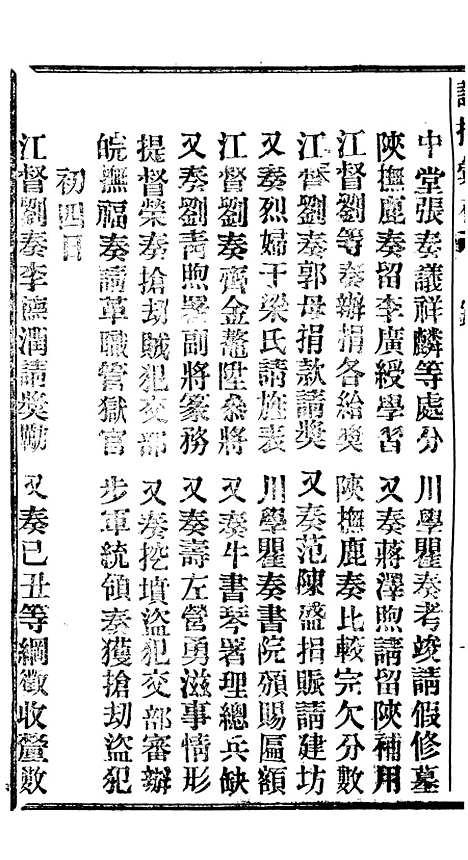 中堂張奏議祥麟等處分　川學瞿奏考竣請假修墓
陝撫鹿奏留李廣綬學習　又奏蔣澤煦請留陝補用
江督劉等奏辦捐各給奬　陝撫鹿奏比較完欠分數
江督劉奏郭母捐款請奬　又奏范陳盛捐賑請建坊
又奏烈婦于梁氏請旌表　川學瞿奏書院頒賜匾額
江督劉奏齊金鼇陞叅將　又奏牛書琴署理總兵缺
又奏劉靑煦署副將篆務　又奏壽左營勇滋事情形
提督榮奏搶刧賊犯交部　又奏挖墳盜犯交部審辦
皖撫福奏請革職管獄官　步軍統領奏獲搶劫盜犯
初四日
江督劉奏李德潤請奬勵　又奏已丑等綱徵收釐數